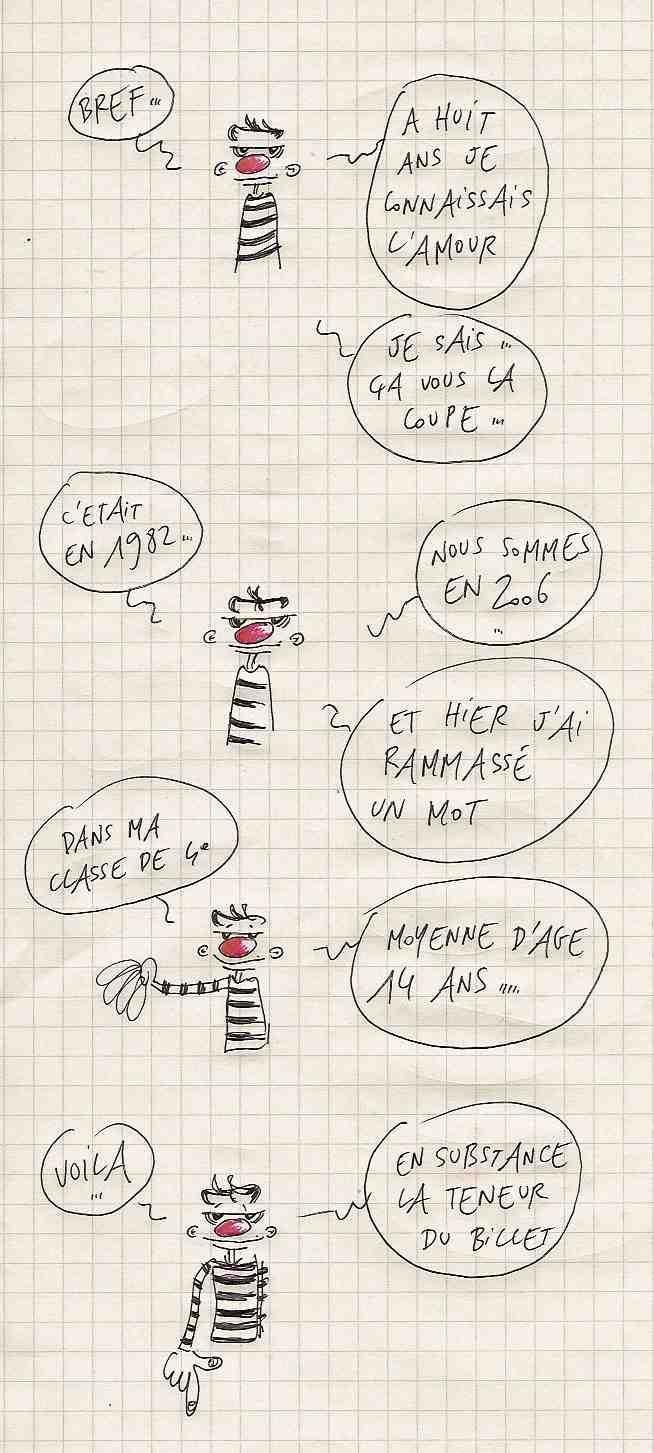 BREF...
A HUIT
ANS JE
CONNAISSAIS
L'AMOUR
JE SAIS...
ÇA VOUS LA
COUPE...
C'ETAIT
EN 1982...
NOUS SOMMES
EN 2006
...
ET HIER J'AI
RAMMASSÉ
UN MOT
DANS MA
CLASSE DE 4e
MOYENNE D'AGE
14 ANS....
VOILA
...
EN SUBSTANCE
LA TENEUR
DU BILLET